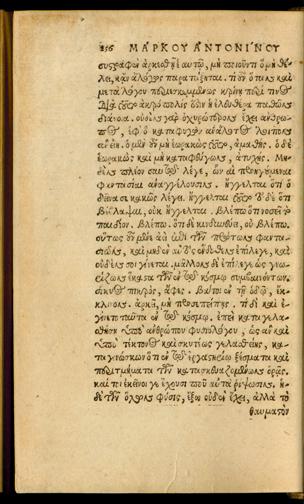 256 ΜΑΡΚΟΥ ΑΝΤΩΝΙΝΟΥ
συστραφὲν ἀρκεσθῇ ἑαυτῷ, μὴ ποιοῦντι ὃ μὴ θέ-
λει, κἂν ἀλόγως παρατάξηται. τί οὖν ὅταν καὶ
μετὰ λόγου περιεσκεμμένως κρίνῃ περί τινος;
Διὰ τοῦτο ἀκρόπολις ἐστὶν ἡ ἐλευθέρα παθῶν
διάνοια. οὐδὲν γὰρ ὀχυρώτερον ἔχει ἄνθρω-
πος, ἐφ' ὃ καταφυγὼν ἀνάλωτος λοιπὸν
ἂν εἴη. ὁ μὲν οὖν μὴ ἑωρακὼς τοῦτο, ἀμαθής. ὁ δὲ
ἑωρακὼς καὶ μὴ καταφεύγων, ἀτυχής. Μη-
δὲν πλέον σαυτῷ λέγε, ὧν αἱ προηγούμεναι
φαντασίαι ἀναγγέλουσιν. ἤγγελται ὅτι ὁ
δεῖνα σε κακῶς λέγει. ἤγγελται τοῦτο. τὸ δὲ ὅτι
βέβλαψαι, οὐκ ἤγγελται. Βλέπω ὅτι νοσεῖ τὸ
παιδίον. Βλέπω. ὅτι δὲ κινδυνεύει, οὐ βλέπω.
οὕτως οὖν μένε ἀεὶ ἐπὶ τῶν πρώτων φαντα-
σιῶν, καὶ μηδὲν αὐτὸς ἔνδοθεν ἐπίλεγε, καὶ
οὐδέν σοι γίνεται. μᾶλλον δὲ ἐπίλεγε ὡς γνω-
ρίζων ἕκαστα τῶν ἐν τῷ κόσμῳ συμβαινόντων.
σίκυος πικρός, ἄφες. Βάτοι ἐν τῇ ὁδῷ, ἔκ-
κλινον. ἀρκεῖ, μὴ προσεπείπῃς. τί δὲ καὶ ἐ-
γίνετο ταῦτα ἐν τῷ κόσμῳ. ἐπεὶ καταγελα-
σθήσῃ ὑπὸ ἀνθρώπου φυσιολόγου, ὡς ἂν καὶ
ὑπὸ τέκτονος καὶ σκυτέως γελασθείης, κα-
ταγινώσκων ὅτι ἐν τῷ ἐργαστηρίῳ ξέσματα καὶ
περιτμήματα τῶν κατασκευαζομένων ὁρᾷς.
καίτοι ἐκεῖνοί γε ἔχουσι ποῦ αὐτὰ ῥίψωσιν. ἡ
δὲ τῶν ὅλων φύσις, ἔξω οὐδὲν ἔχει, ἀλλὰ τὸ
θαυμαστὸν